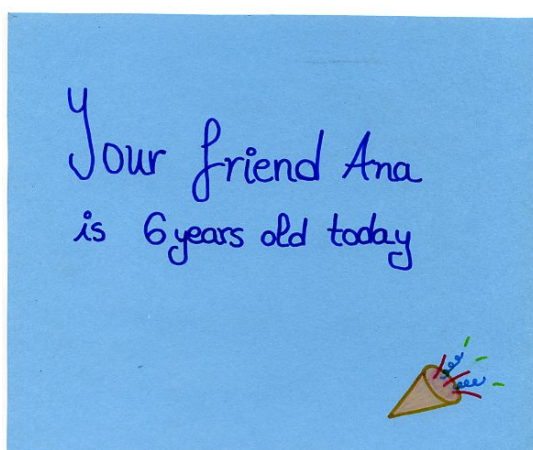 Your friend Ana
is 6 years old today